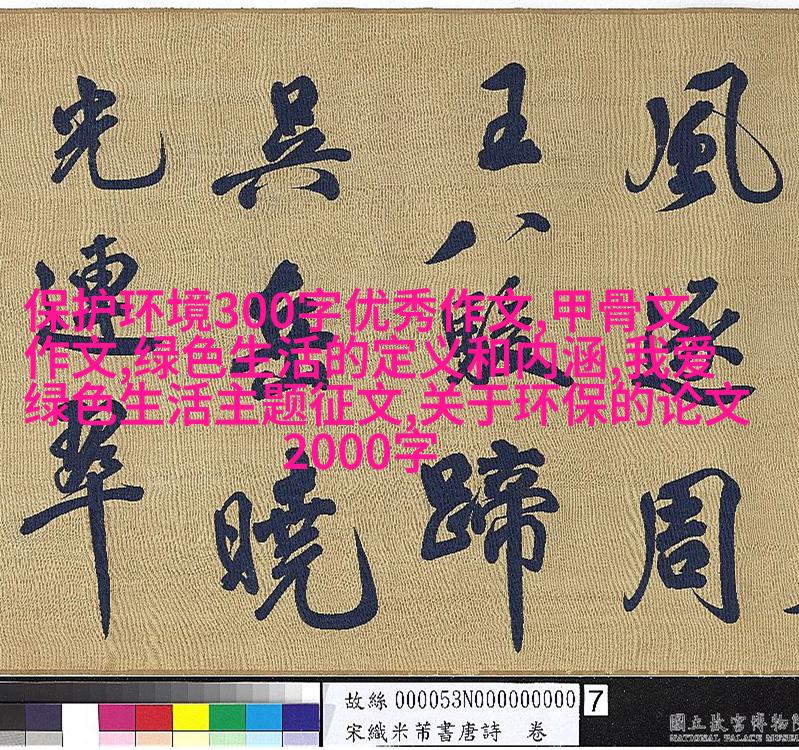 風逐周
王八駿蹄
吳岳曉
光連翠
保护环境300字优秀作文,甲骨文
作文,绿色生活的定义和内涵,我爱
绿色生活主题征文,关于环保的论文
2000字
故絲 000053N000000000 7
宋織米芾書唐詩 卷
國立故宮博物院
NATIONAL PALACE MUSEUM